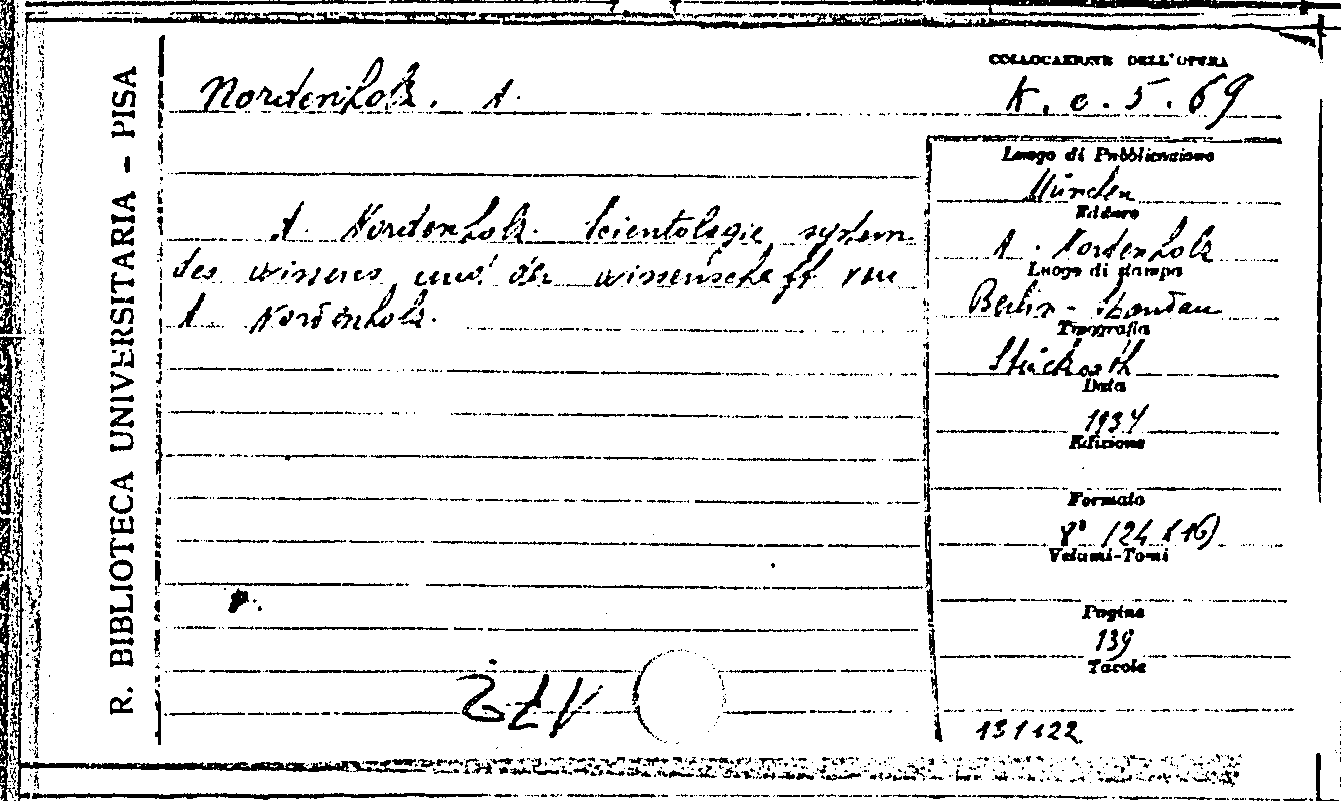 R. BIBLIOTECA UNIVERSITARIA - PISA
Nordenholz. A.
COLLOCAZIONE DELL'OPERA
K. c. 5. 69
A. Nordenholz. Scientologie system
des wissens und der wissenschaft von
A. Nordenholz.
Luogo di Pubblicazione
München
Editore
A. Nordenholz
Luogo di stampa
Berlin - Spandau
Tipografia
Data
1934
Edizione
Formato
8° (24 x 16)
Volumi-Tomi
Pagine
139
Tavole
131122